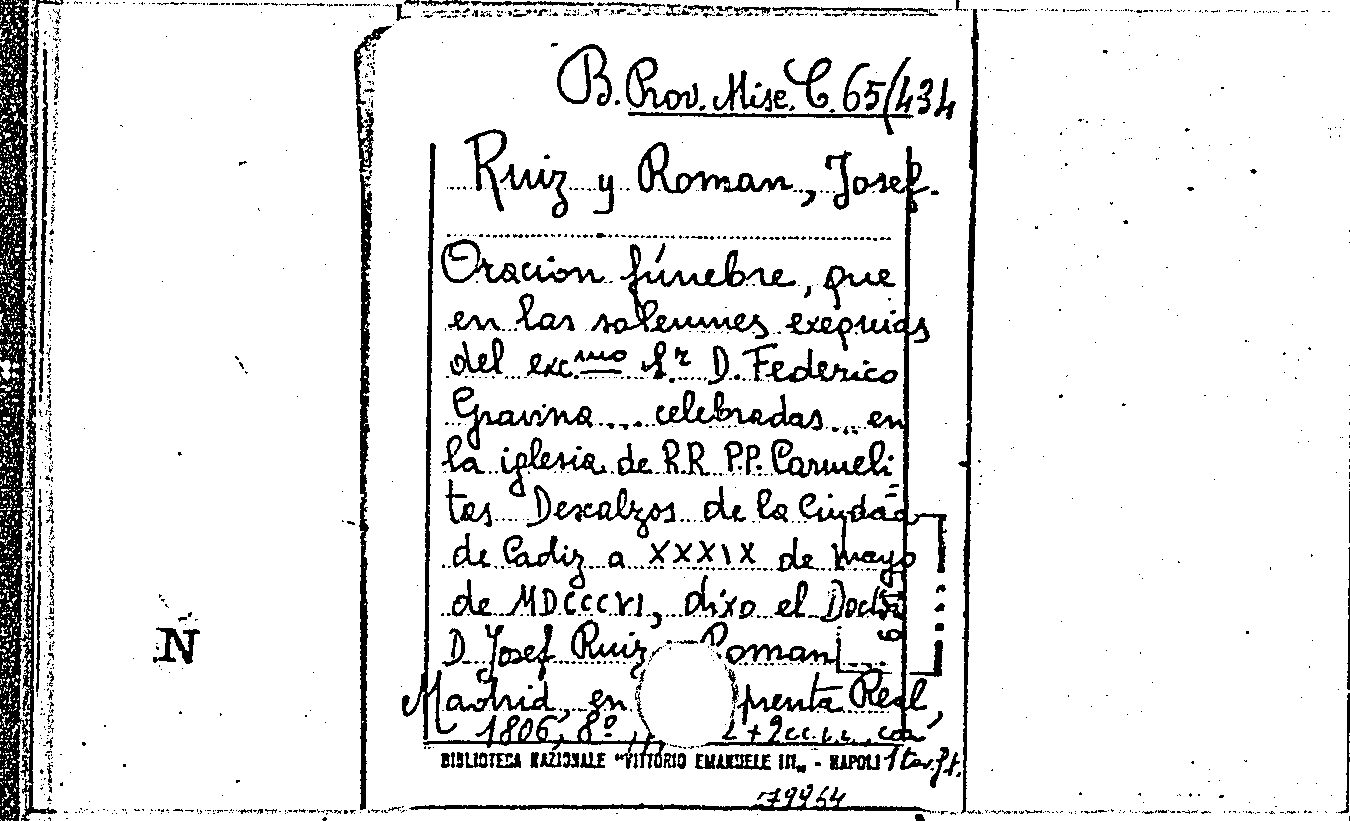 B. Prov. Misc. C. 65/434
Ruiz y Roman, Josef.
Oracion fúnebre, que
en las solemnes exequias
del exc.mo S.r D. Federico
Gravina... celebradas... en
la iglesia de RR P.P. Carmeli-
tas Descalzos de la Ciudad
de Cadiz a XXXIX de mayo
de MDCCCVI, dixo el Doctor
D. Josef Ruiz Roman
Madrid, en prenta Real,
1806, 8º, con
1 tav. f.t.
BIBLIOTECA NAZIONALE "VITTORIO EMANUELE III„ - NAPOLI
79964
N